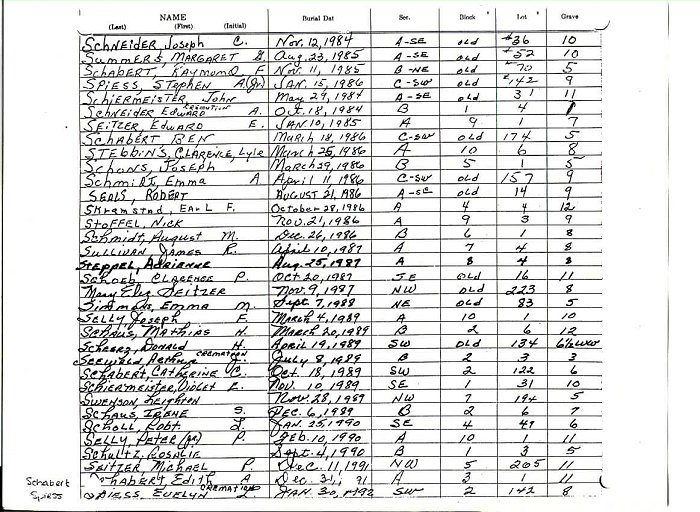 NAME Burial Dat Sec. Block Lot Grave
(Last) (First) (Initial)
Schneider Joseph C. Nov. 12, 1984 A-SE OLD #36 10
Summers, Margaret Aug. 23, 1985 A-SE OLD #52 10
Schabert, Raymond F Nov. 11, 1985 B-NE OLD #70 5
Spiess, Stephen A(Jr) JAN. 15, 1986 C-SW OLD #142 9
Schiermeister, John May 29, 1984 A-SE OLD 31 11
Schneider Edward CREMATION A. Oct. 18, 1984 B 1 4
Seitzer, Edward E. JAN. 10, 1985 A 9 1 7
Schabert Ben March 18, 1986 C-SW OLD 174 5
STEBBINS, CLARENCE, Lyle March 25, 1986 A 10 6 8
Schons, Joseph March 29, 1986 B 5 1 5
Schmidt, Emma A April 11 1986 C-SW OLD 157 9
Seals, Robert August 21, 1986 A-SE OLD 14 9
Skramstad, Earl F. October 28, 1986 A 4 4 12
Stoffel, Nick Nov. 21, 1986 A 9 3 9
Schmidt, August M. Dec. 26, 1986 B 6 1 8
Sullivan James R. April 10, 1987 A 7 4 8
Steppel, Adrienne Aug. 25, 1987 A 8 4 8
Schoeb, Clarence P. Oct 20, 1987 SE OLD 16 11
Mary Eliz Seitzer Nov. 9, 1987 NW OLD 223 8
Emma M. Sept 7, 1988 NE OLD 83 5
Selly Joseph F. March 4, 1989 A 10 1 10
Schaus, Mathias H. March 20, 1989 B 2 6 12
Scheerz, Donald H. April 19, 1989 SW OLD 134
Seewald, Arthur CREMATION July 8, 1989 B 2 3 3
Schabert, Catherine C. Oct. 18, 1989 SW 2 122 6
Schiermeister, Violet E. Nov. 10, 1989 SE 1 31 10
Swenson, Leighton Nov. 28, 1989 NW 7 194 5
Schaus, Irene S. Dec. 6, 1989 B 2 6 7
Scholl, Robt. L. JAN. 25, 1990 SE 4 47 6
Selly, Peter (Jr) P. Feb. 10, 1990 A 10 1 11
Schultz, Rosalie Sept. 4, 1990 B 1 3 5
Seitzer, Michael P. Dec. 11, 1991 NW 5 205 11
Schabert Schabert, Edith A Dec. 31, 91 A 3 1 11
Spiess Spiess, Evelyn CREMATION L. JAN. 30, 1992 SW 2 142 8